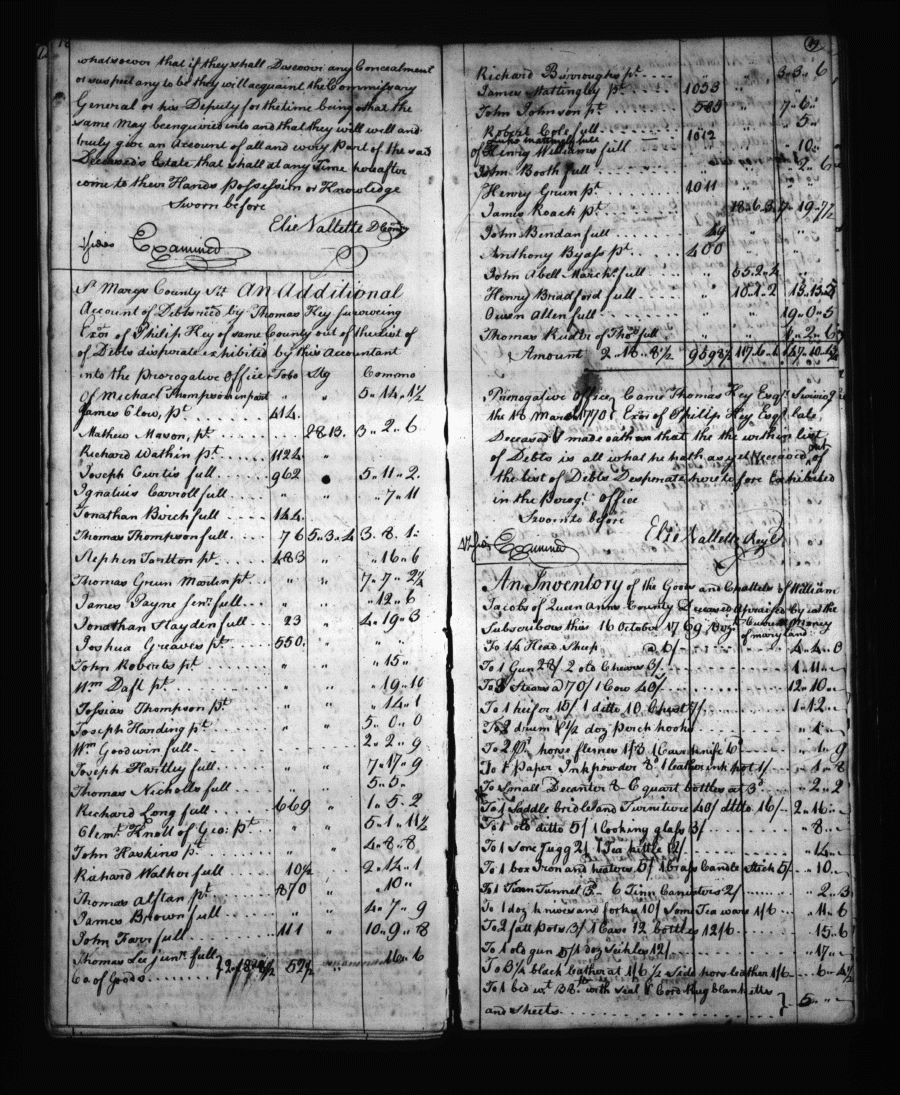 18
whatsoever that if they shall Discover any Concealment
or suspect any to be they will acquaint the Commissary
General or his Deputy for the time being that the
same May be enquired into and that they will well and
truly give an Account of all and every Part of the said
Deceased's Estate that shall at any Time hereafter
come to their Hands Possession or Knowledge
Sworn before
Elie Vallette D Comy
Examined
St Marys County Sct An Additional
Account of Debts recd by Thomas Key surviving
Exor of Philip Key of same County out of the list of
of Debts disperate exhibited by this Accountant
into the Prerogative Office Tobo Stg Commo
Of Michael Thompson in part " " 5.. 14.. 1½
James Clow, pt 414.
Mathew Mason, pt 28.13. 3.. 2.. 6
Richard Wathin pt 1124 "
Joseph Curtis full 962 5.. 11.. 2.
Ignatius Carroll full " " " 7.. 11
Jonathan Birch full 144.
Thomas Thompson full 76 5.. 3.. 4 3.. 8.. 1.
Stephen Tarlton pt 483 " " 16.. 6
Thomas Green Marten pt " " 7.. 7.. 2¼
James Payne Senr full " " " 12.. 6
Jonathan Hayden full 23 " 4.. 19.. 3
Joshua Greaves pt 550.
John Roberts pt " " " 15 "
Wm Daft pt " " " 19.. 10
Jossias Thompson pt " " " 14.. 1
Joseph Harding pt 5.. 0.. 0
Wm Goodwin full 2.. 2.. 9
Joseph Hartley full " " 7.. 17.. 9
Thomas Nicholls full 5.. 5..
Richard Long full 669 " 1.. 5.. 2
Clemt Knott of Geo: pt " " 5.. 1.. 11½
John Haskins pt 4.. 8.. 8
Richard Walker full 10½ 2.. 14.. 1
Thomas Alstan pt 870 " 10 "
James Brown full " " 4.. 7.. 9
John Farr full 111 10.. 9.. 8
Thomas Lee junr full " 16.. 6
Co of Goods 52½
Richard Burroughs pt " " 3.. 3.. 6
James Mattingley pt 1053 "
John Johnson pt 585 " 7.. 6..
Robert Cole full 1012 " 5..
of Henry Williams full " 10..
John Booth full " 2.. 6
Henry Green pt 1011
James Roach pt 18.. 6.. 3 7.. 19.. 7½
John Bendan full 49 " "
Anthony Byass pt 400
John Abell Marcht full " 65.. 2.. 2
Henry Bradford full " 10.. 1.. 2 13.. 13.. 5
Owen Allen full 19.. 0.. 5
Thomas Rudor of Thos full " 4.. 2.. 6
Amount 2.. 16.. 8½
Prerogative Office Came Thomas Key Esqr
the 18 March 1770 Exor of Philip Key Esqr late
Deceased & made oath that the the within list
of Debts is all what he hath as yet Received out of
the list of Debts Desperate heretofore Exhibited
in the Prerog: Office
Sworn to before
Elie Vallette Regr
Examined
An Inventory of the Goods and Chattels of William
Jacobs of Queen Anns County Deceased Apraised by us the
Subscribers this 16 October 1769 in Current Money
of maryland
To 14 Head Sheep @ 6/ 4.. 4.. 0
To 1 Gun 28/ 2 old Chears 3/ 1.. 11..
To 3 Stears @ 70/ 1 Cow 40/ 12.. 10..
To 1 heifer 15/ 1 ditto 10. Chest 7/ 1.. 12..
To 2 drum & 1½ doz Perch hooks " 1..
To 2 pr horse flemes 1/3 1 Case knife 6d " 1.. 9
To 1 Paper Inkpowder 8d 1 leather ink pot 1/ " 1.. 8
To Small Decanter & 6 quart bottles at 3d " 2.. 2
To 1 Saddle bridle and Furniture 40/ ditto 16/ 2.. 16..
To 1 old ditto 5/ 1 looking glass 3/ " 8..
To 1 Sone Jugg 2/ 1 Tea kittle 12/ " 14..
To 1 box Iron and heaters 5/ 1 brass Candle Stick 5/ " 10..
To 1 Tinn Tunnel 3d 6 Tinn Canesters 2/ " 2.. 3
To 1 doz knives and forks 10/ Some Tea ware 1/6 " 11.. 6
To 2 fatt Pots 3/ 1 Case 12 bottles 12/6 15.. 6
To 1 old gun 5/ 1 doz Sickles 12/ " 17..
To 3¼ black leather at 1/6 ½ Side horse leather 1/6 6.. 4½
To 1 bed wt 38lb with Seal & Cord Rug blankitts
and Sheets 5.. "